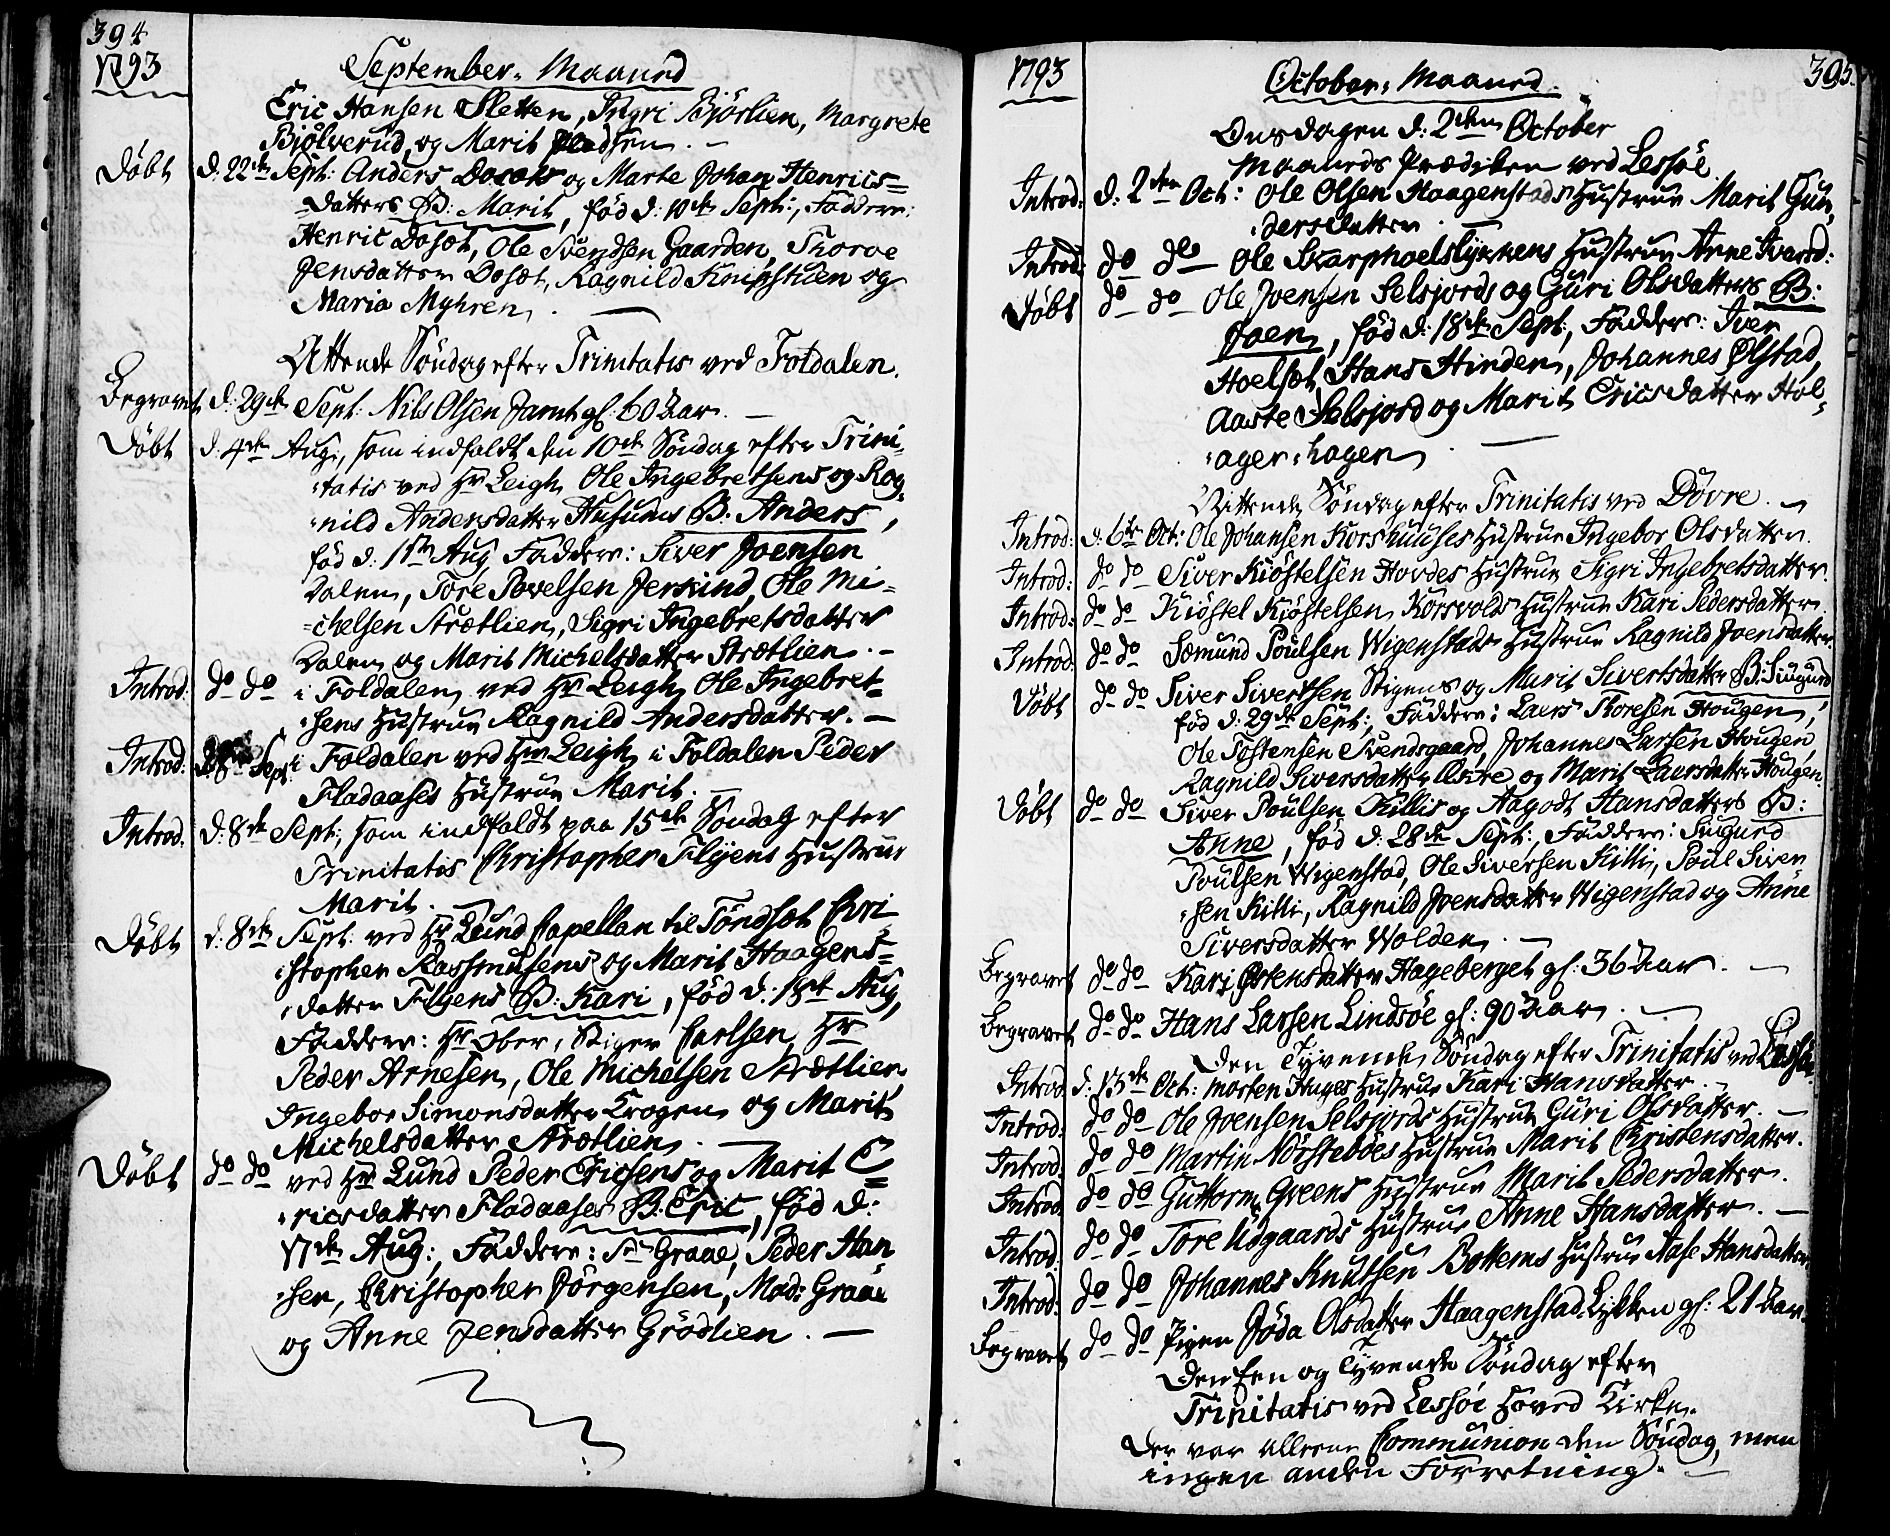 394
1793
September. Maaned
Eric Hansen Sletten, Ingri Bjørlien, Margrete
Bjølverud, og Marit . –
Døbt d: 22de Sept: Anders Dosæts og Marte Johan Henrics=
=datters B: Marit, fød d: 10de Sept:, Faddere:
Henric Dosæt, Ole Svendsen Gaarden, Thorve
Jensdatter Dosæt, Ragnild Knipstuen og
Maria Myhren . —
Attende Søndag efter Trinitatis ved Foldalen.
Begravet d: 29de Sept: Nils Olsen Jamt gl: 60 Aar. —
Døbt d: 4de Aug:, som indfaldt den 10de Søndag efter Trini-
:tatis ved Hr Leigh Ole Ingebretsens og Rag-
:nild Andersdatter Husums B: Anders,
fød d: 1ste Aug, Faddere: Siver Joensen
Dalen, Tore Povelsen Jerkind, Ole Mi-
=chelsen Strætlien, Sigri Ingebretsdatter
Dalen og Marit Michelsdatter Strætlien. –
Introd: do do i Foldalen ved Hr Leigh Ole Ingebret-
:sens Hustrue Ragnild Andersdatter. —
Introd: Sept: i Foldalen ved Hr Leigh i Foldalen Peder
Fladaases Hustrue Marit. —
Introd. d: 8de Sept:, som indfaldt paa 15de Søndag efter
Trinitatis Christopher Flyens Hustrue
Marit. —
Døbt d: 8de Sept: ved Hr Lund Capellan til Tøndset Chri-
:stopher Rasmusens og Marit Haagens=
:datter Flyens B: Kari, fød d: 18de Aug,
Faddere: Hr Ober: Stiger Carlsen, Hr
Peder Arnesen, Ole Michelsen Strætlien
Ingebor Simonsdatter Krogen og Marit
Michelsdatter Strætlien. —
Døbt do do ved Hr Lund Peder Ericsens og Marit E=
:ricsdatter Fladaases B: Eric, fød d:
17de Aug:, Faddere: Sr Graae, Peder Han-
:sen, Christopher Jørgensen, Mad: Graae
og Anne Jensdatter Grødlien. —
1793
395.
October. Maaned.
Onsdagen d: 2den October
Maaneds Prædiken ved Lessøe
Introd: d: 2den Oct: Ole Olsen Haagenstads Hustrue Marit Gun-
:dersdatter. —
Introd: do do — Ole Skarphoelslykkens Hustrue Anne Iversd:
Døbt do do Ole Joensen Selsjords og Guri Olsdatters B:
Joen, fød d: 18de Sept:, Faddere: Iver
Hoelsæt, Hans Hinden, Johannes Ølstad,
Aaste Selsjord og Marit Ericsdatter Høl-
:ager:hagen —
Nittende Søndag efter Trinitatis ved Dovre. —
Introd: d: 6te Oct: Ole Johansen Korshuuses Hustrue Ingebor Olsdatter.
Introd: do do Siver Kiøstelsen Hovdes Hustrue Sigri Ingebretsdatter.
Introd: do do Kiøstel Kiøstelsen Korsvolds Hustrue Kari Pedersdatter.
Introd: do do Semund Poulsen Wigenstads Hustrue Ragnild Joensdatter.
Døbt do do Siver Sivertsen Stigens og Marit Sivertsdatter B: Siugurd
fød d: 29de Sept:, Faddere: Laers Thoresen Hougen,
Ole Tostensen Svendsgaard, Johannes Larsen Hougen,
Ragnild Siversdatter og Marit Laersdatter Hougen.
Døbt do do Siver Poulsen Killis og Aagodt Hansdatters B:
Anne, fød d: 28de Sept:, Faddere: Siugurd
Poulsen Wigenstad, Ole Siversen Killi, Poul Siver-
:sen Killi, Ragnild Joensdatter Wigenstad og Anne
Siversdatter Wolden. —
Begravet do do Kari Østensdatter Hageberget gl: 36 Aar. —
Begravet do do Hans Larsen Lindsøe gl: 90 Aar. —
Den Tyvende Søndag efter Trinitatis ved Lessøe
Introd d: 13de Oct: Morten Huges Hustrue Kari Hansdatter. —
Introd: do do Ole Joensen Selsjords Hustrue Guri Olsdatter. —
Introd: do do Martin Nørstebøes Hustrue Marit Christensdatter.
Introd. do do Guttorm Greens Hustrue Marit Pedersdatter.
Introd do do Tore Udgaards Hustrue Anne Hansdatter. —
Introd: do do Johannes Knutsen Bottems Hustrue Aase Hansdatter
Begravet do do Pigen Jøda Olsdatter Haagenstad:Lykken gl: 21 Aar.
Den Een og Tyvende Søndag efter
Trinitatis ved Lessøe Hoved Kirke.
Der var alleene Communion den Søndag, men
ingen anden Forretning. —